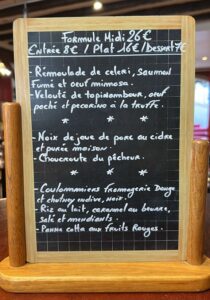 Formule Midi 26€
Entrée 8€ / Plat 16€ / Dessert 7€
- Rémoulade de celeri, saumon
fumé et oeuf mimosa.
- Velouté de topinambour, oeuf
poché et pecorino à la truffe.
* * *
- Noix de joue de porc au cidre
et purée maison.
- Choucroute du pêcheur.
* * *
- Coulommiers fromagerie Donge
et chutney endive, noix.
- Riz au lait, caramel au beurre,
salé et mendiants.
- Panna cotta aux fruits Rouges.